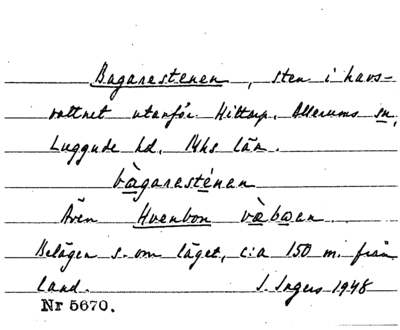 Bagarestenen, sten i havs-
vattnet utanför Hittarp, Allerums sn,
Luggude hd, Mhs län.
bàgaresténan
Även Hvenbon vœ̀bωan
Belägen s. om läget, c:a 150 m. från
land. I. Ingers 1948
Nr 5670.